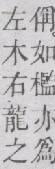 偁如檻亦爲
左木右龍之